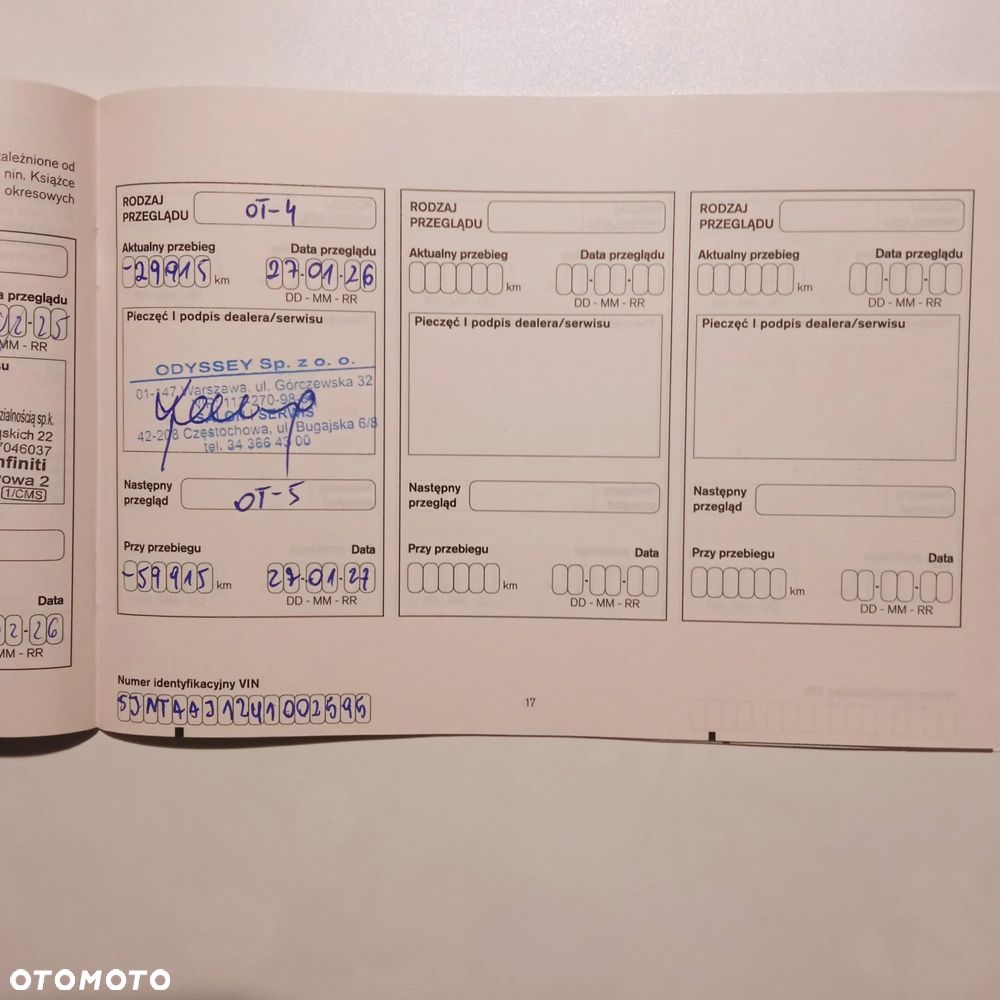 zależnione od
nin. Książce
okresowych
a przeglądu
02-25
MM - RR
su
zialnością sp.k.
gskich 22
7046037
nfiniti
owa 2
1/CMS
Data
02-26
MM - RR
RODZAJ PRZEGLĄDU OT-4
Aktualny przebieg Data przeglądu
-29915 km 27-01-26
DD - MM - RR
Pieczęć I podpis dealera/serwisu
ODYSSEY Sp. z o. o.
01-147 Warszawa, ul. Górczewska 32
SERWIS
42-208 Częstochowa, ul. Bugajska 6/8
tel. 34 366 43 00
Następny przegląd OT-5
Przy przebiegu Data
-59915 km 27-01-27
DD - MM - RR
RODZAJ PRZEGLĄDU
Aktualny przebieg Data przeglądu
km
DD - MM - RR
Pieczęć I podpis dealera/serwisu
Następny przegląd
Przy przebiegu Data
km
DD - MM - RR
RODZAJ PRZEGLĄDU
Aktualny przebieg Data przeglądu
km
DD - MM - RR
Pieczęć I podpis dealera/serwisu
Następny przegląd
Przy przebiegu Data
km
DD - MM - RR
Numer identyfikacyjny VIN
SJNTAAJ12U1002595
17
OTOMOTO